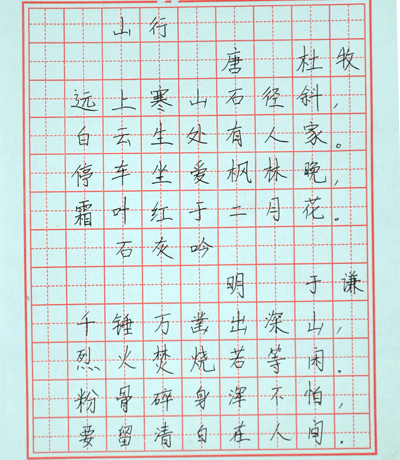 山行
唐 杜牧
远上寒山石径斜，
白云生处有人家。
停车坐爱枫林晚，
霜叶红于二月花。
石灰吟
明 于谦
千锤万凿出深山，
烈火焚烧若等闲。
粉骨碎身浑不怕，
要留清白在人间。